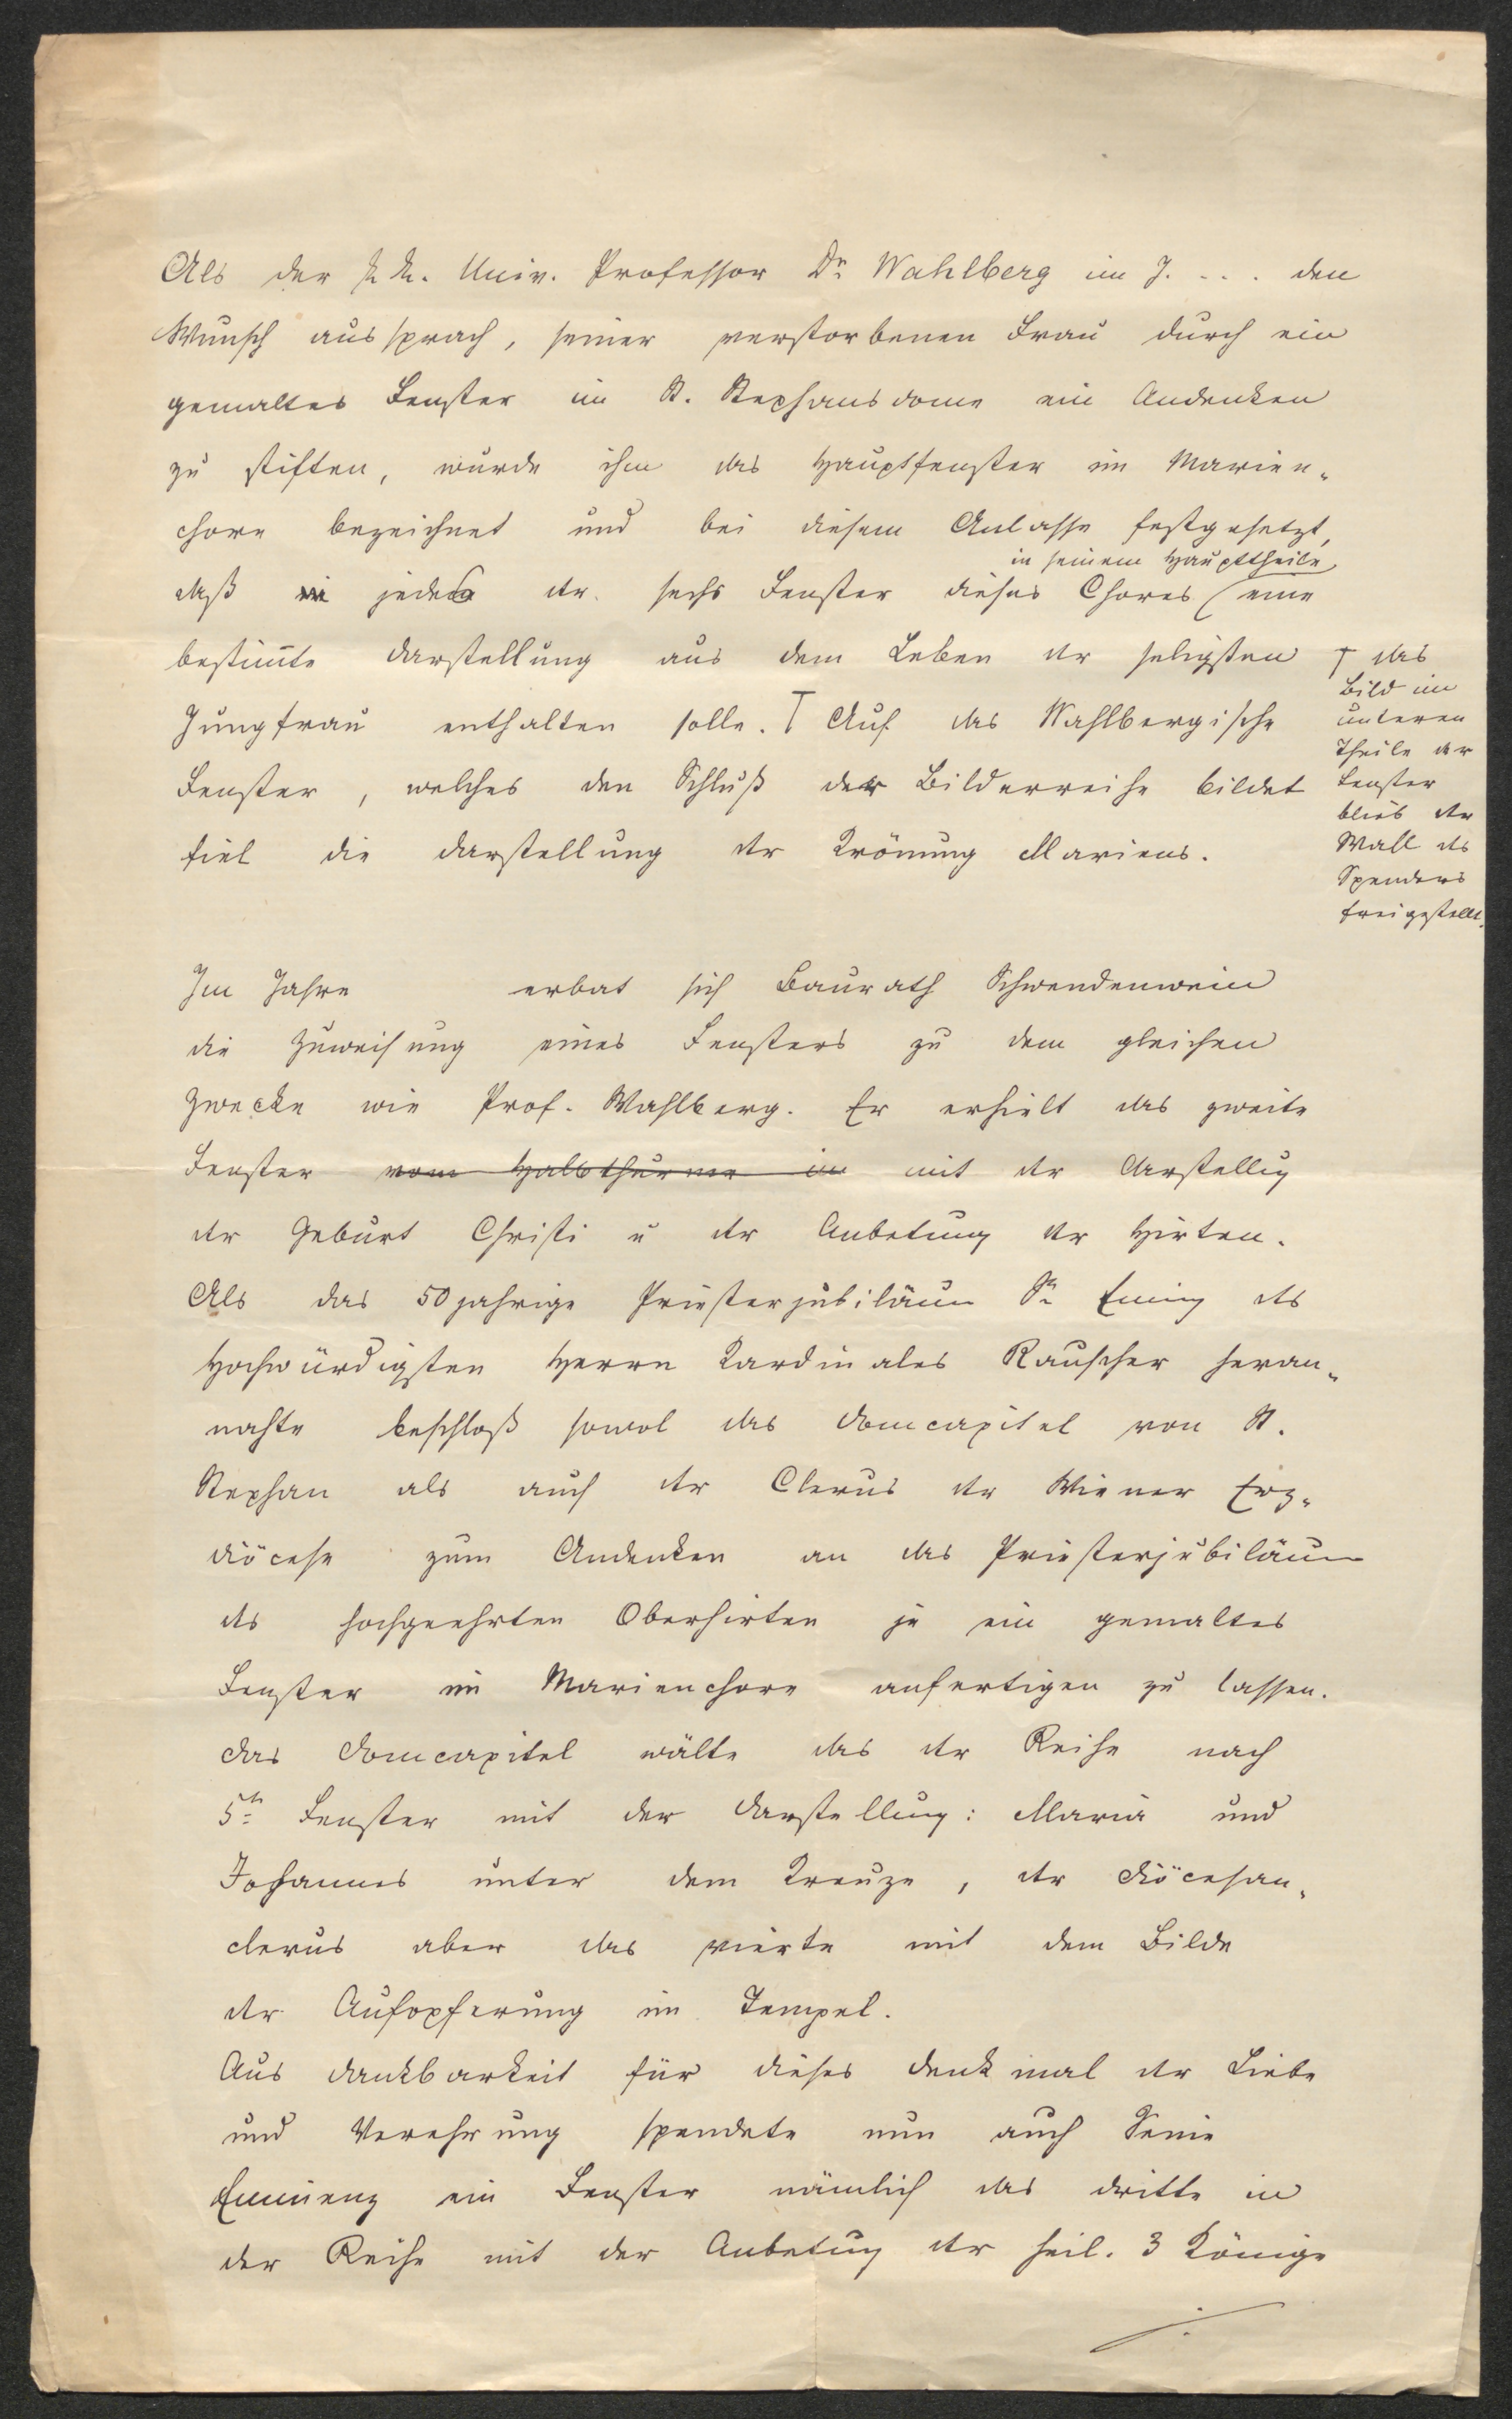 Als der k. k. Univ. Professor Dr Wahlberg im J. . . . den
Wunsch aussprach, seiner verstorbenen Frau durch ein
gemaltes Fenster im St. Stephansdome ein Andenken
zu stiften, wurde ihm das Hauptfenster im Marien-
chore bezeichnet und bei diesem Anlasse festgesetzt,
in seinem Haupttheile
daß jedes der sechs Fenster dieses Chores eine
bestimmte Darstellung aus dem Leben der seligsten
Jungfrau enthalten solle. Auf das Wahlbergische
Fenster, welches den Schluß der Bilderreihe bildet
fiel die Darstellung der Krönung Mariens.
das
Bild im
unteren
Theile der
Fenster
blieb der
Wall des
Spenders
freigestellt.
Im Jahre erbat sich Baurath Schwendenwein
die Zuweisung eines Fensters zu dem gleichen
Zwecke wie Prof. Wahlberg. Er erhielt das zweite
Fenster vom Halbthurme im mit der Darstellug
der Geburt Christi u der Anbetung der Hirten.
Als das 50jahrige Priesterjubiläum Sr Eming des
Hochwürdigsten Herrn Kardinales Rauscher heran-
nahte beschloß sowol das Domcapitel von St.
Stephan als auch der Clerus der Wiener Erz-
diöcese zum Andenken an das Priesterjubiläum
des hochgeehrten Oberhirten je ein gemaltes
Fenster im Marienchore anfertigen zu lassen.
Das Domcapitel wälte das der Reihe nach
5te Fenster mit der Darstellung: Maria und
Johannes unter dem Kreuze, der Diöcesan-
clerus aber das vierte mit dem Bilde
der Aufopferung im Tempel.
Aus Dankbarkeit für dieses Denkmal der Liebe
und Verehrung spendete nun auch Seine
Eminenz ein Fenster nämlich das dritte in
der Reihe mit der Anbetug der heil. 3 Könige